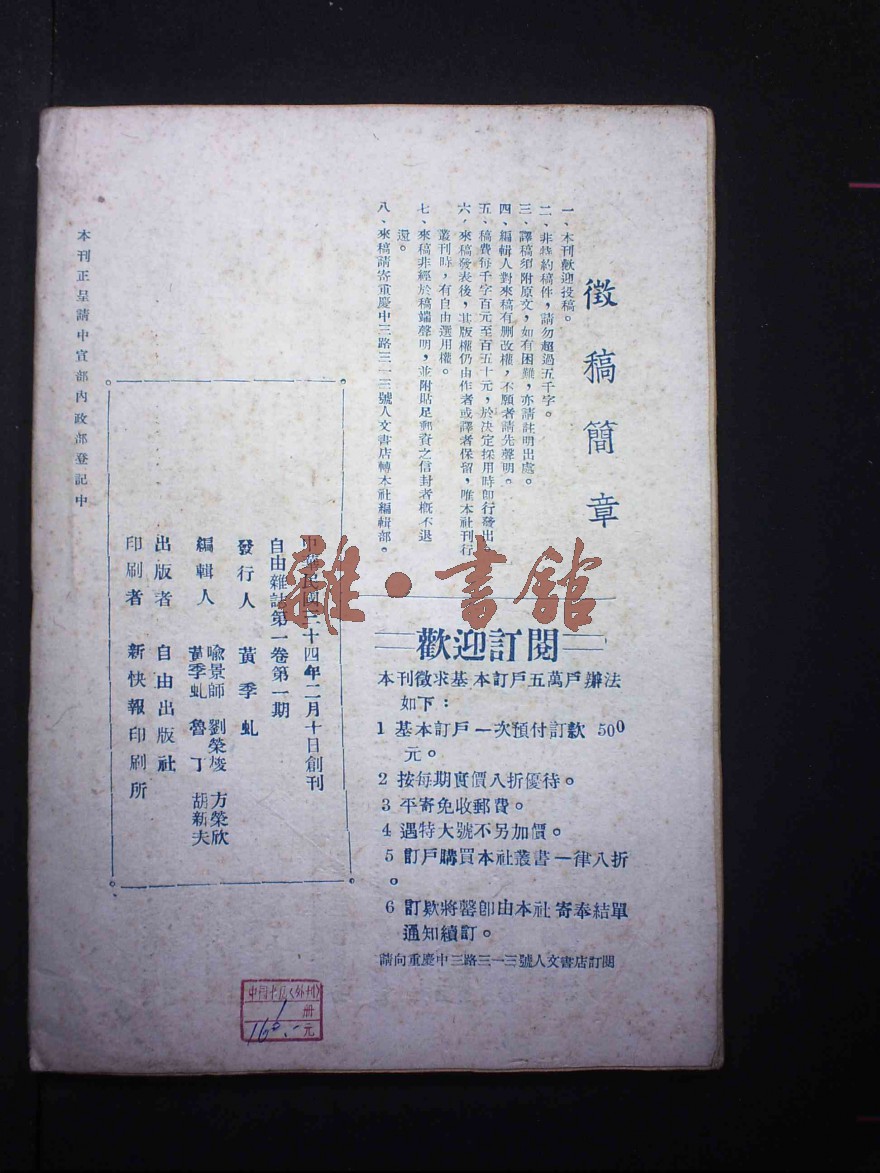 徵稿簡章
一、本刊歡迎投稿。
二、非特約稿件，請勿超過五千字。
三、譯稿須附原文，如有困難，亦請註明出處。
四、編輯人對來稿有删改權，不願者請先聲明。
五、稿費每千字百元至百五十元，於決定採用時即行發出
六、來稿發表後，其版權仍由作者或譯者保留，唯本社刊行
叢刊時，有自由選用權。
七、來稿非經於稿端聲明，並附貼足郵資之信封者概不退
還。
八、來稿請寄重慶中三路三一三號人文書店轉本社編輯部。
雜·書館
歡迎訂閱
本刊徵求基本訂戶五萬戶辦法
如下：
1 基本訂戶一次預付訂款 500
元。
2 按每期實價八折優待。
3 平寄免收郵費。
4 遇特大號不另加價。
5 訂戶購買本社叢書一律八折
。
6 訂欵將罄即由本社寄奉結單
通知續訂。
請向重慶中三路三一三號人文書店訂閱
中華民國三十四年二月十日創刊
自由雜誌第一卷第一期
發行人 黃季虬
編輯人 喩景師 劉榮焌 方榮欣
黃季虬 魯丁 胡新夫
出版者 自由出版社
印刷者 新快報印刷所
本刊正呈請中宣部內政部登記中
1 册
元